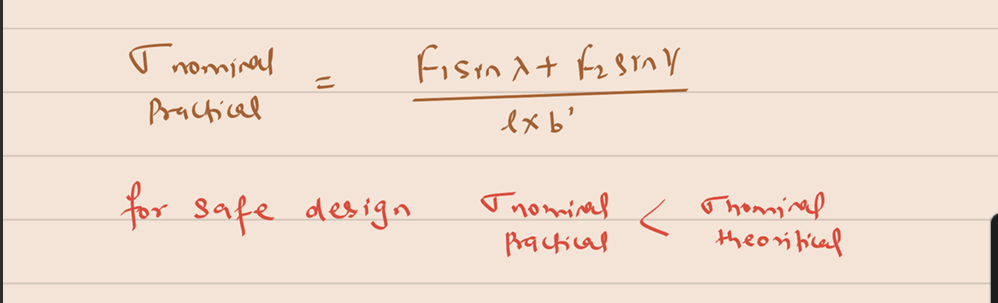 σ nominal practical = F₁ sin λ + F₂ sin γ / l × b'
for safe design σ nominal practical < σ nominal theoritical